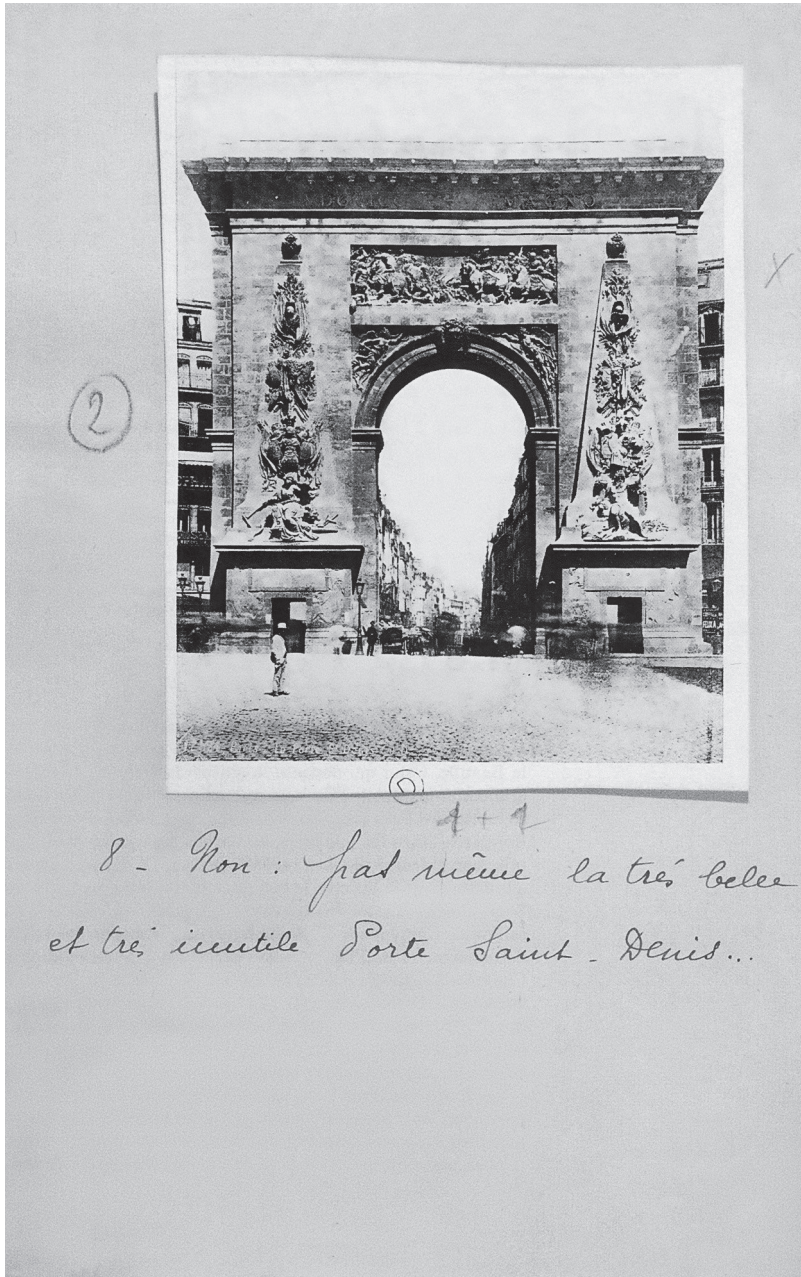 ②
X
D
1 + 1
8 - Non : pas même la très belle
et très inutile Porte Saint - Denis...